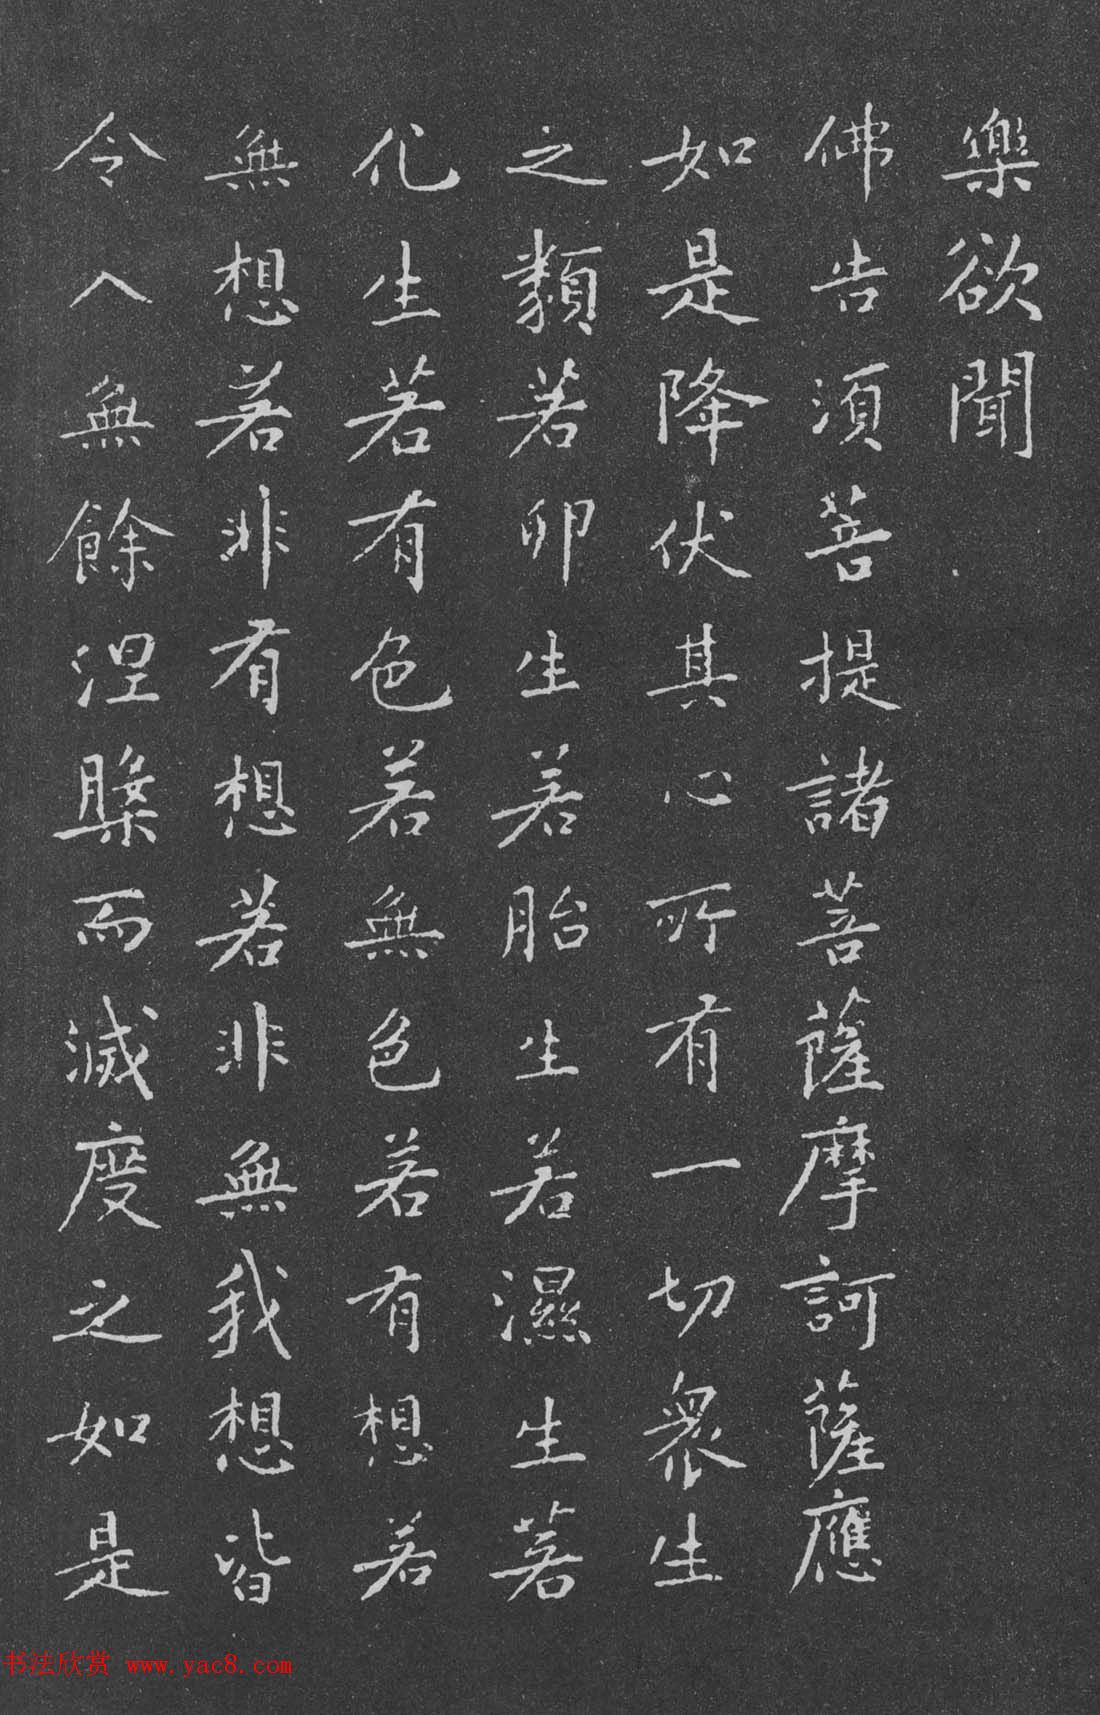 樂欲聞
佛告須菩提諸菩薩摩訶薩應
如是降伏其心所有一切眾生
之類若卵生若胎生若濕生若
化生若有色若無色若有想若
無想若非有想若非無我想皆
令入無餘涅槃而滅度之如是
书法欣赏 www.yac8.com